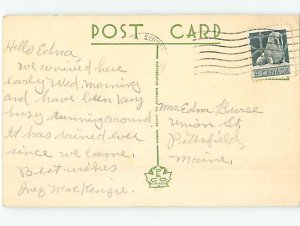 POST CARD
SYD
Hello Edna,
we arrived here
early Wed. morning
and have been very
busy running around.
It has rained ever
since we came.
Best wishes
Inez MacKenzie.
Mrs. Edna Burse
Union St.
Pittsfield
Maine.